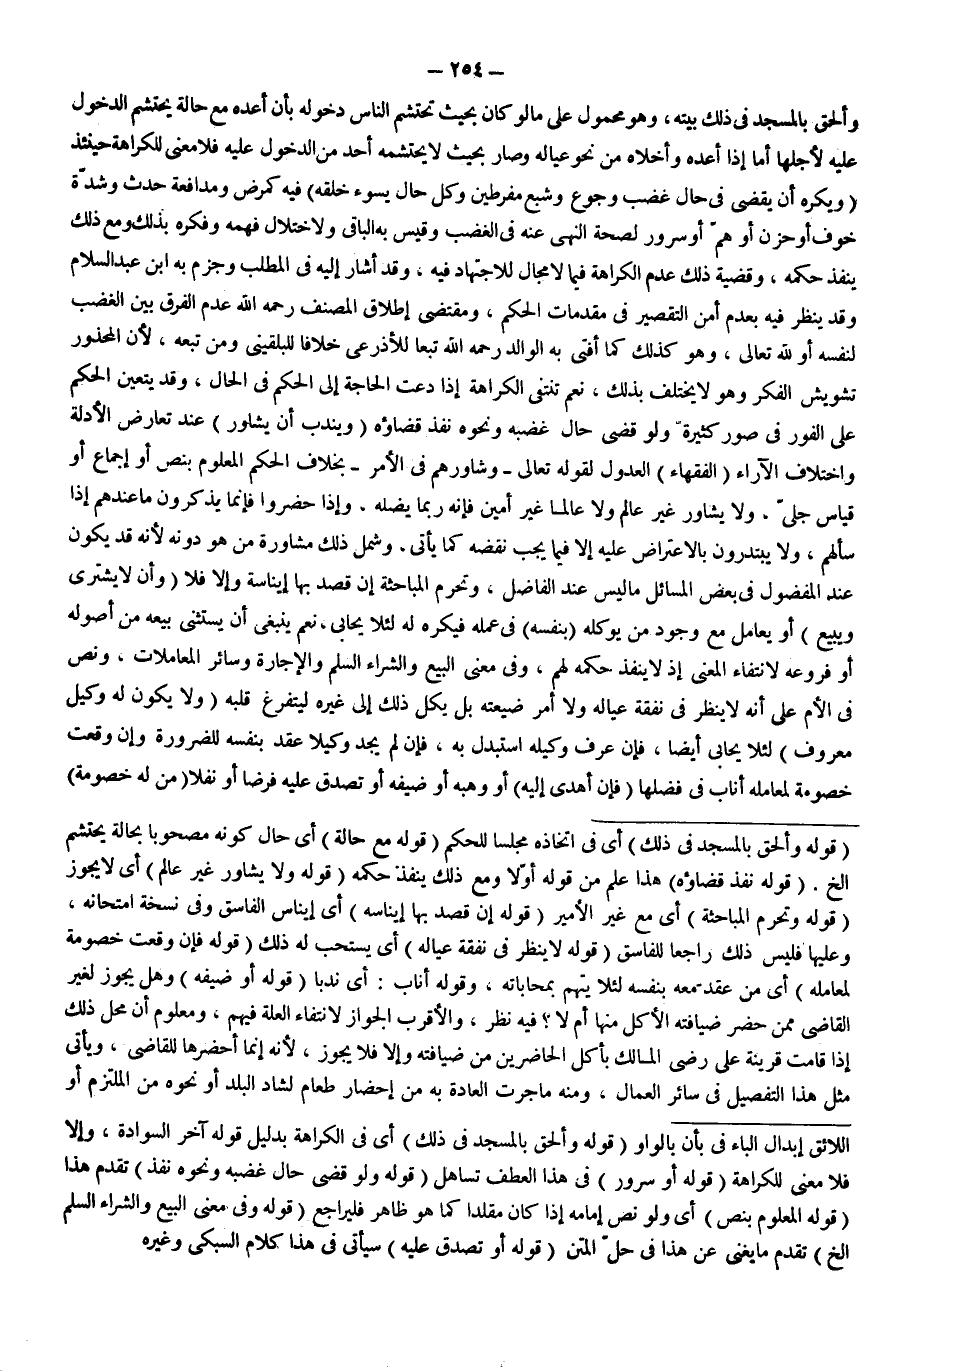 – ٢٥٤ –
وألحق بالمسجد فى ذلك بيته ، وهو محمول على مالو كان بحيث تحتشم الناس دخوله بأن أعده مع حالة يحتشم الدخول
عليه لأجلها أما إذا أعده وأخلاه من نحو عياله وصار بحيث لايحتشمه أحد من الدخول عليه فلامعنى للكراهة حينئذ
( ويكره أن يقضى فى حال غضب وجوع وشبع مفرطين وكل حال يسوء خلقه) فيه كمرض ومدافعة حدث وشدّة
خوف أو حزن أو همّ أو سرور لصحة النهى عنه فى الغضب وقيس به الباقى ولاختلال فهمه وفكره بذلك ومع ذلك
ينفذ حكمه ، وقضية ذلك عدم الكراهة فيما لامجال للاجتهاد فيه ، وقد أشار إليه فى المطلب وجزم به ابن عبدالسلام
وقد ينظر فيه بعدم أمن التقصير فى مقدمات الحكم ، ومقتضى إطلاق المصنف رحمه الله عدم الفرق بين الغضب
لنفسه أو لله تعالى ، وهو كذلك كما أفتى به الوالد رحمه الله تبعا للأذرعى خلافا للبلقينى ومن تبعه ، لأن المحذور
تشويش الفكر وهو لايختلف بذلك ، نعم تنتفى الكراهة إذا دعت الحاجة إلى الحكم فى الحال ، وقد يتعين الحكم
على الفور فى صور كثيرة ولو قضى حال غضبه ونحوه نفذ قضاؤه ( ويندب أن يشاور ) عند تعارض الأدلة
واختلاف الآراء ( الفقهاء ) العدول لقوله تعالى ـ وشاورهم فى الأمر ـ بخلاف الحكم المعلوم بنص أو إجماع أو
قياس جلىّ . ولا يشاور غير عالم ولا عالما غير أمين فإنه ربما يضله . وإذا حضروا فإنما يذكرون ماعندهم إذا
سألهم ، ولا يبتدرون بالاعتراض عليه إلا فيما يجب نقضه كما يأتى . وشمل ذلك مشاورة من هو دونه لأنه قد يكون
عند المفضول فى بعض المسائل ماليس عند الفاضل ، وتحرم المباحثة إن قصد بها إيناسة وإلا فلا ( وأن لايشترى
ويبيع ) أو يعامل مع وجود من يوكله (بنفسه) فى عمله فيكره له لئلا يحابى ، نعم ينبغى أن يستثنى بيعه من أصوله
أو فروعه لانتفاء المعنى إذ لاينفذ حكمه لهم ، وفى معنى البيع والشراء السلم والإجارة وسائر المعاملات ، ونص
فى الأم على أنه لاينظر فى نفقة عياله ولا أمر ضيعته بل يكل ذلك إلى غيره ليتفرغ قلبه ( ولا يكون له وكيل
معروف ) لئلا يحابى أيضا ، فإن عرف وكيله استبدل به ، فإن لم يجد وكيلا عقد بنفسه للضرورة وإن وقعت
خصومة لمعامله أناب فى فضلها ( فإن أهدى إليه) أو وهبه أو ضيفه أو تصدق عليه فرضا أو نفلا (من له خصومة)
( قوله وألحق بالمسجد فى ذلك ) أى فى اتخاذه مجلسا للحكم ( قوله مع حالة ) أى حال كونه مصحوبا بحالة يحتشم
الخ . ( قوله نفذ قضاؤه) هذا علم من قوله أوّلا ومع ذلك ينفذ حكمه ( قوله ولا يشاور غير عالم ) أى لايجوز
( قوله وتحرم المباحثة ) أى مع غير الأمير ( قوله إن قصد بها إيناسه ) أى إيناس الفاسق وفى نسخة امتحانه ،
وعليها فليس ذلك راجعا للفاسق ( قوله لاينظر فى نفقة عياله ) أى يستحب له ذلك ( قوله فإن وقعت خصومة
لمعامله ) أى من عقد معه بنفسه لئلا يتهم بمحاباته ، وقوله أناب : أى ندبا ( قوله أو ضيفه ) وهل يجوز لغير
القاضى ممن حضر ضيافته الأكل منها أم لا ؟ فيه نظر ، والأقرب الجواز لانتفاء العلة فيهم ، ومعلوم أن محل ذلك
إذا قامت قرينة على رضى المالك بأكل الحاضرين من ضيافته وإلا فلا يجوز ، لأنه إنما أحضرها للقاضى ، ويأتى
مثل هذا التفصيل فى سائر العمال ، ومنه ماجرت العادة به من إحضار طعام لشاد البلد أو نحوه من الملتزم أو
اللائق إبدال الباء فى بأن بالواو ( قوله وألحق بالمسجد فى ذلك ) أى فى الكراهة بدليل قوله آخر السوادة ، وإلا
فلا معنى للكراهة ( قوله أو سرور ) فى هذا العطف تساهل ( قوله ولو قضى حال غضبه ونحوه نفذ ) تقدم هذا
( قوله المعلوم بنص ) أى ولو نص إمامه إذا كان مقلدا كما هو ظاهر فليراجع ( قوله وفى معنى البيع والشراء السلم
الخ ) تقدم مايغنى عن هذا فى حلّ المتن ( قوله أو تصدق عليه ) سيأتى فى هذا كلام السبكى وغيره